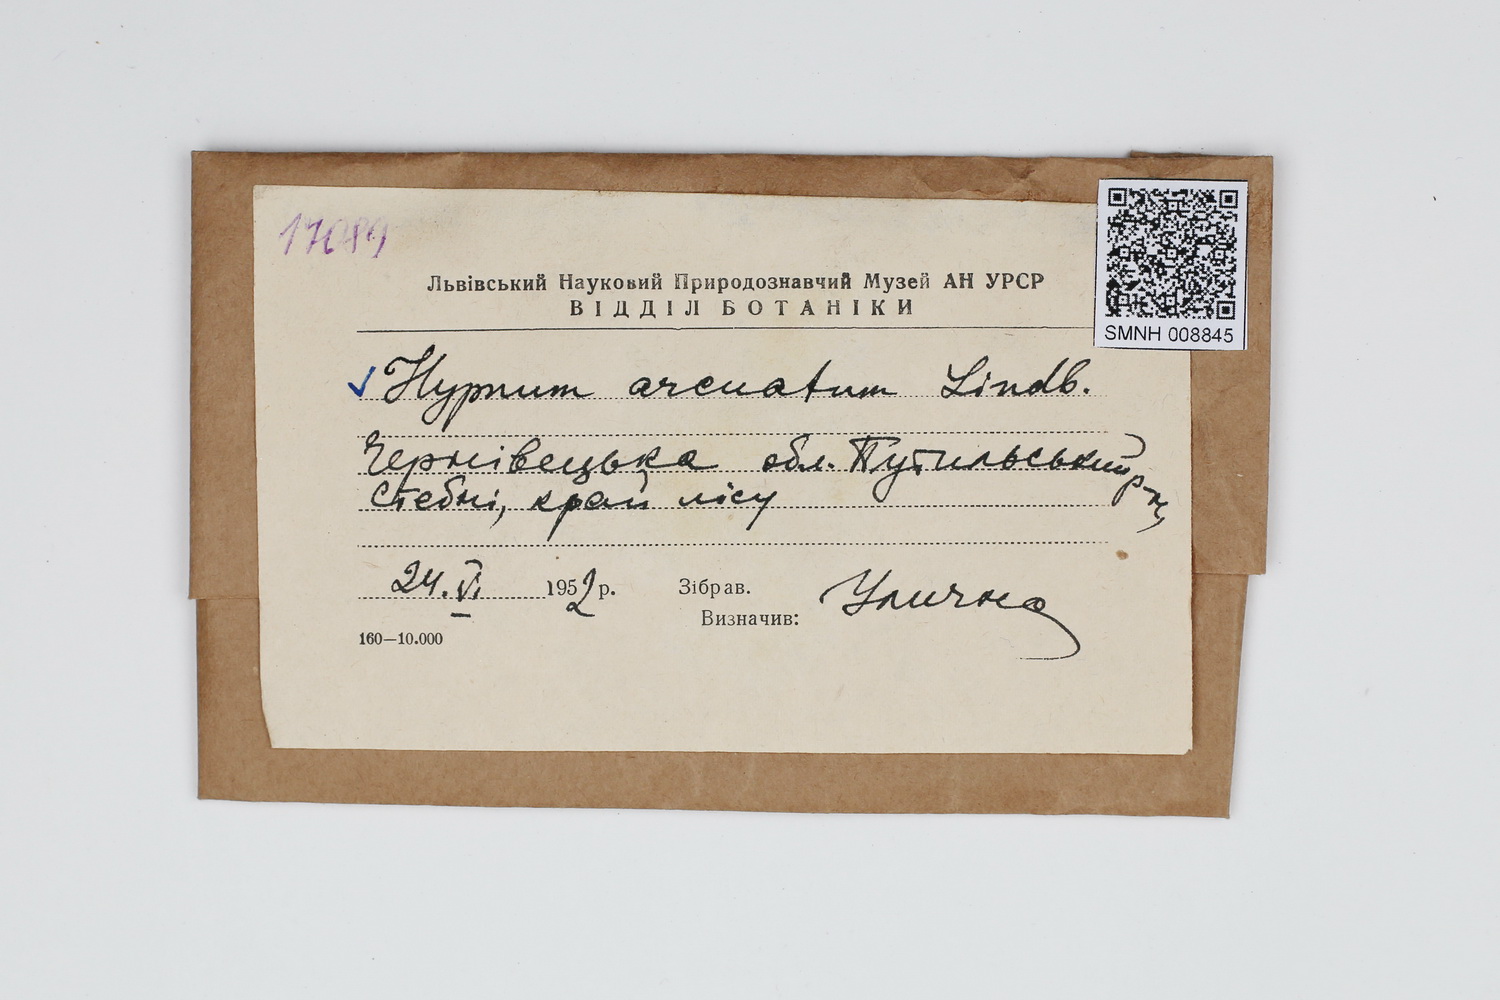 17089
SMNH 008845
Львівський Науковий Природознавчий Музей АН УРСР
ВІДДІЛ БОТАНІКИ
✓ Hypnum arcuatum Lindb.
Чернівецька обл. Путильський р-н,
Стебні, край лісу
24.VI 1952 р. Зібрав.
Визначив: Улична
160—10.000